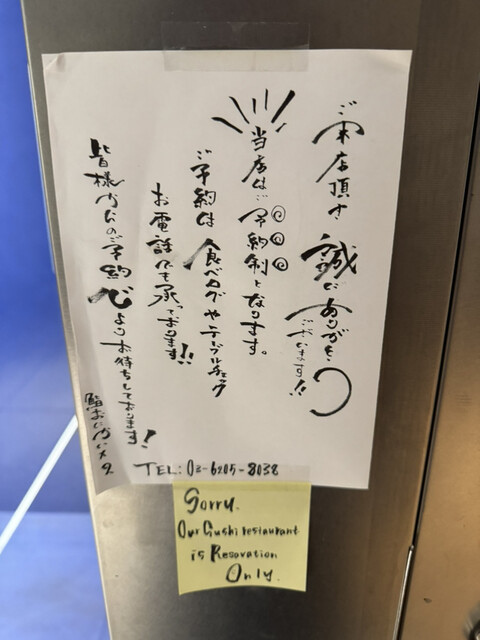 ご来店頂き誠にありがとう
ございます!!
当店はご予約制となります。
ご予約は食べログやテーブルチェック
お電話でも承っております!!
皆様からのご予約心よりお待ちしております!
TEL: 03-6205-8038
Sorry.
Our Sushi restaurant
is Resavation
Only.